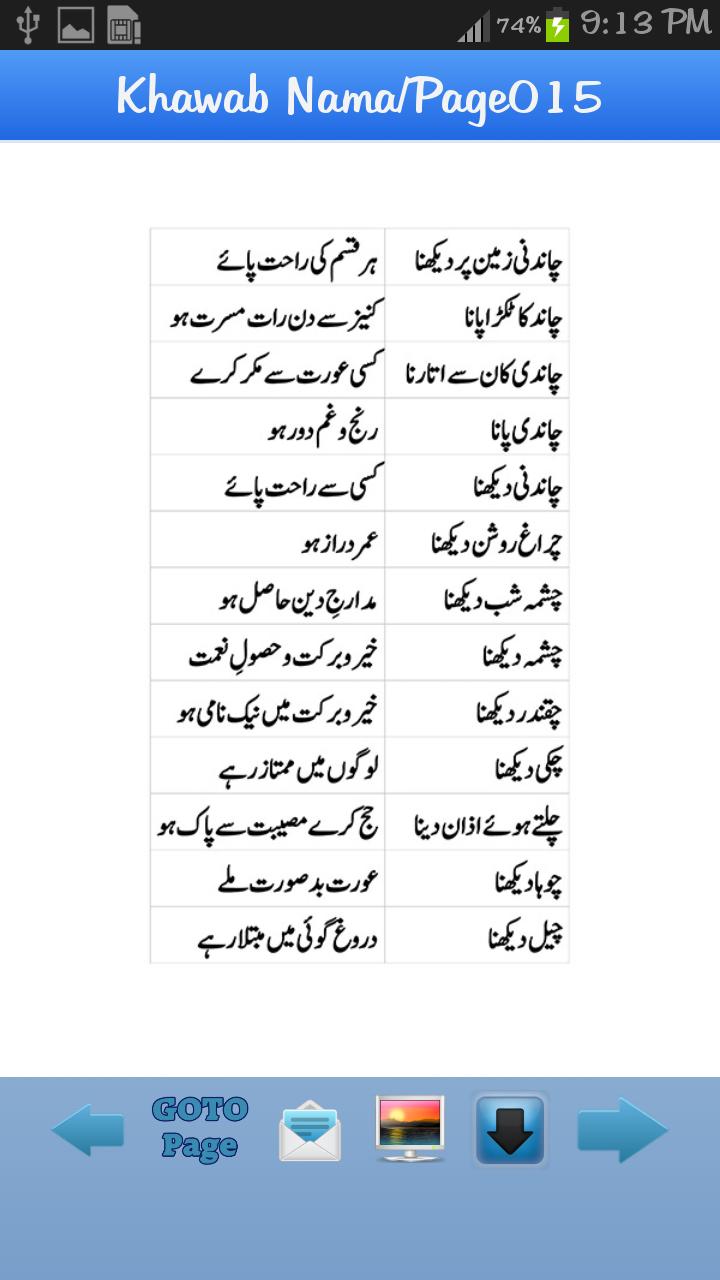 74% 9:13 PM
Khawab Nama/Page015
چاندنی زمین پر دیکھنا ہر قسم کی راحت پائے
چاند کا ٹکڑا پانا کنیز سے دن رات مسرت ہو
چاندی کان سے اتارنا کسی عورت سے مکر کرے
چاندی پانا رنج و غم دور ہو
چاندنی دیکھنا کسی سے راحت پائے
چراغ روشن دیکھنا عمر دراز ہو
چشمہ شب دیکھنا مدارجِ دین حاصل ہو
چشمہ دیکھنا خیر و برکت و حصولِ نعمت
چقندر دیکھنا خیر و برکت میں نیک نامی ہو
چکی دیکھنا لوگوں میں ممتاز رہے
چلتے ہوئے اذان دینا حج کرے مصیبت سے پاک ہو
چوہا دیکھنا عورت بد صورت ملے
چیل دیکھنا دروغ گوئی میں مبتلا رہے
GOTO
Page